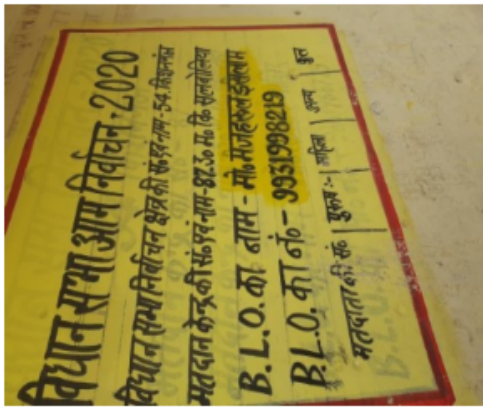 विधान सभा आम निर्वाचन-2020
विधान सभा निर्वाचन क्षेत्र की सं० एवं नाम-54. किशनगंज
मतदान केन्द्र की सं० एवं नाम-87. उ० म० वि०
B.L.O. का नाम - मो० मजहरूल इसलाम
B.L.O. का नं० - 9931998219
मतदाता की सं० | पुरुष :- | महिला | अन्य | कुल